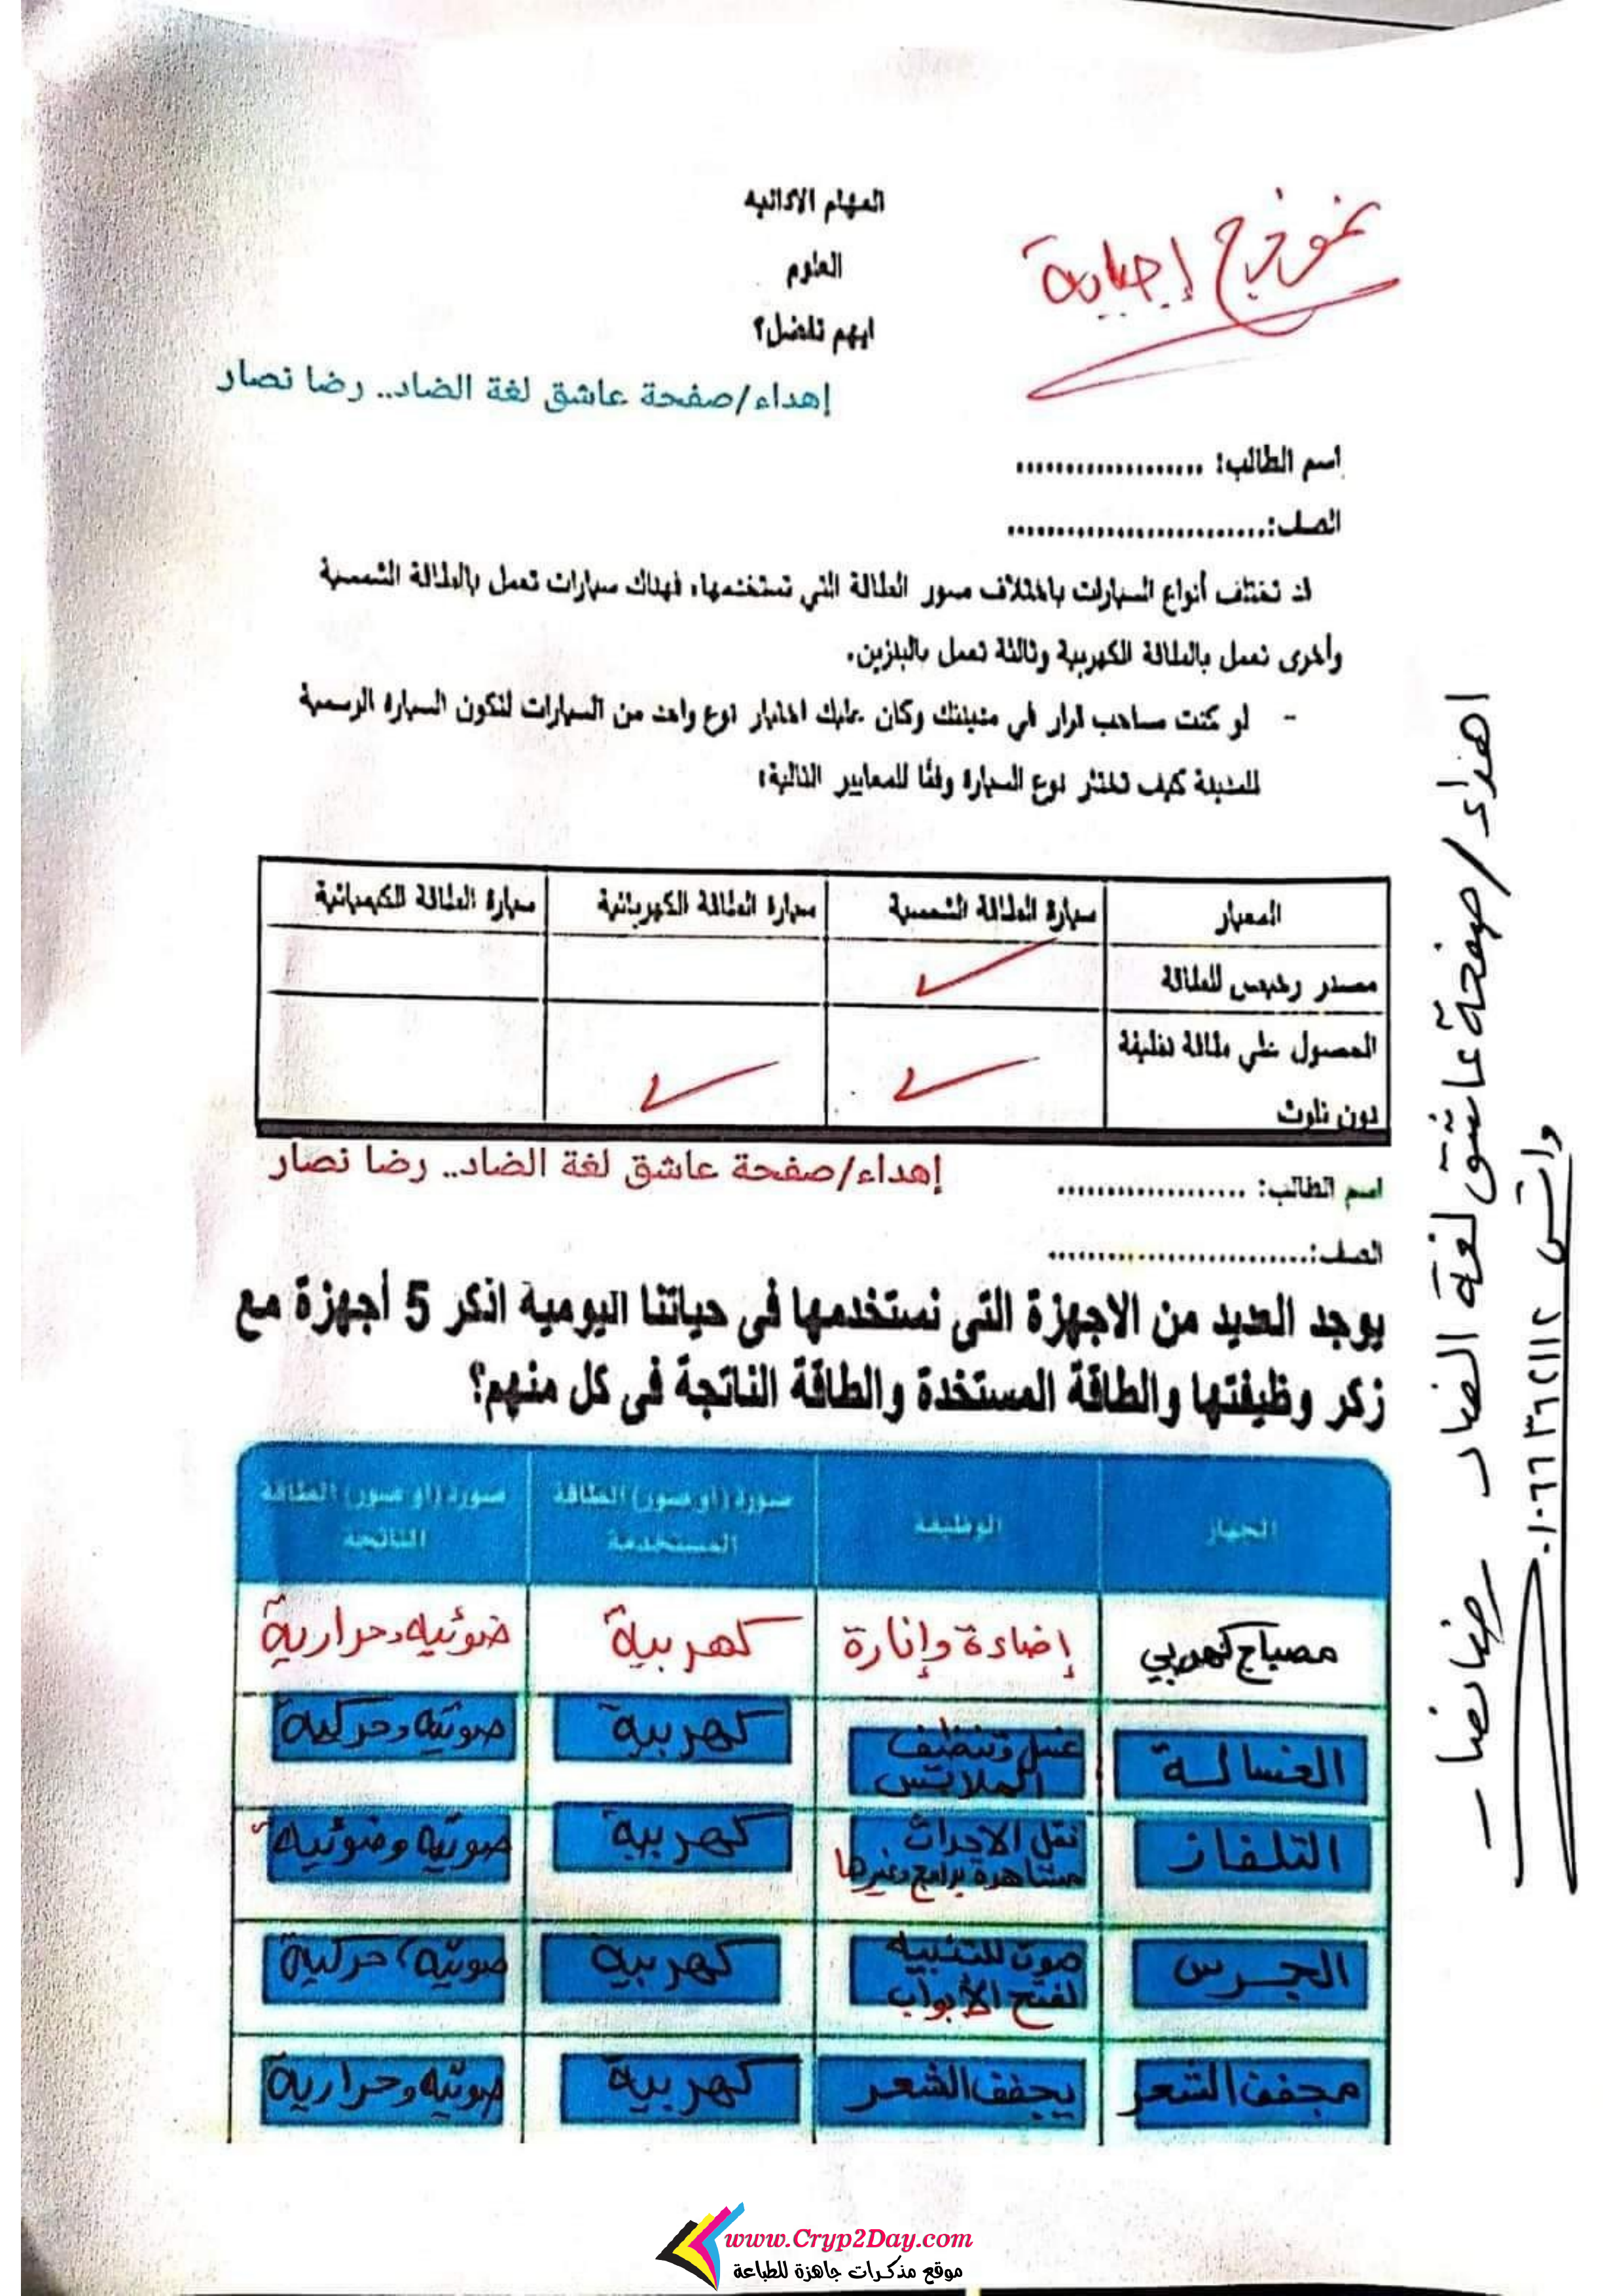 نموذج إجابة
المهام الادائيه
العلوم
ايهم تفضل؟
إهداء/صفحة عاشق لغة الضاد.. رضا نصار
اسم الطالب: ...................
الصف:..........................
قد تختلف أنواع السيارات باختلاف صور الطاقة التي تستخدمها، فهناك سيارات تعمل بالطاقة الشمسية
وأخرى تعمل بالطاقة الكهربية وثالثة تعمل بالبنزين.
- لو كنت صاحب قرار في مدينتك وكان عليك اختيار نوع واحد من السيارات لتكون السياره الرسمية
للمدينة كيف تختار نوع السيارة وفقًا للمعايير التالية:
المعيار سيارة الطاقة الشمسية سيارة الطاقة الكهربائية سيارة الطاقة الكيميائية
مصدر رخيص للطاقة ✓
الحصول علي طاقة نظيفة
دون تلوث ✓ ✓
إهداء/صفحة عاشق لغة الضاد.. رضا نصار
اسم الطالب: ...................
الصف:..........................
يوجد العديد من الاجهزة التى نستخدمها فى حياتنا اليومية اذكر 5 أجهزة مع
زكر وظيفتها والطاقة المستخدة والطاقة الناتجة فى كل منهم؟
الجهاز الوظيفة صورة (او صور) الطاقة المستخدمة صورة (او صور) الطاقة الناتجة
مصباح كهربي إضاءة وإنارة كهربية ضوئيه وحرارية
الغسالة غسل وتنظيف الملابس كهربية صوتيه وحركية
التلفاز نقل الاحداث مشاهدة برامج وغيرها كهربية صوتيه وضوئية
الجرس صوت للتنبيه لفتح الأبواب كهربية صوتية، حركية
مجفف الشعر يجفف الشعر كهربية صوتيه وحرارية
اهداء/صفحة عاشق لغة الضاد رضا نصار
واتس ٠١٠٦٦٣٦٢١١٢
www.Cryp2Day.com
موقع مذكرات جاهزة للطباعة